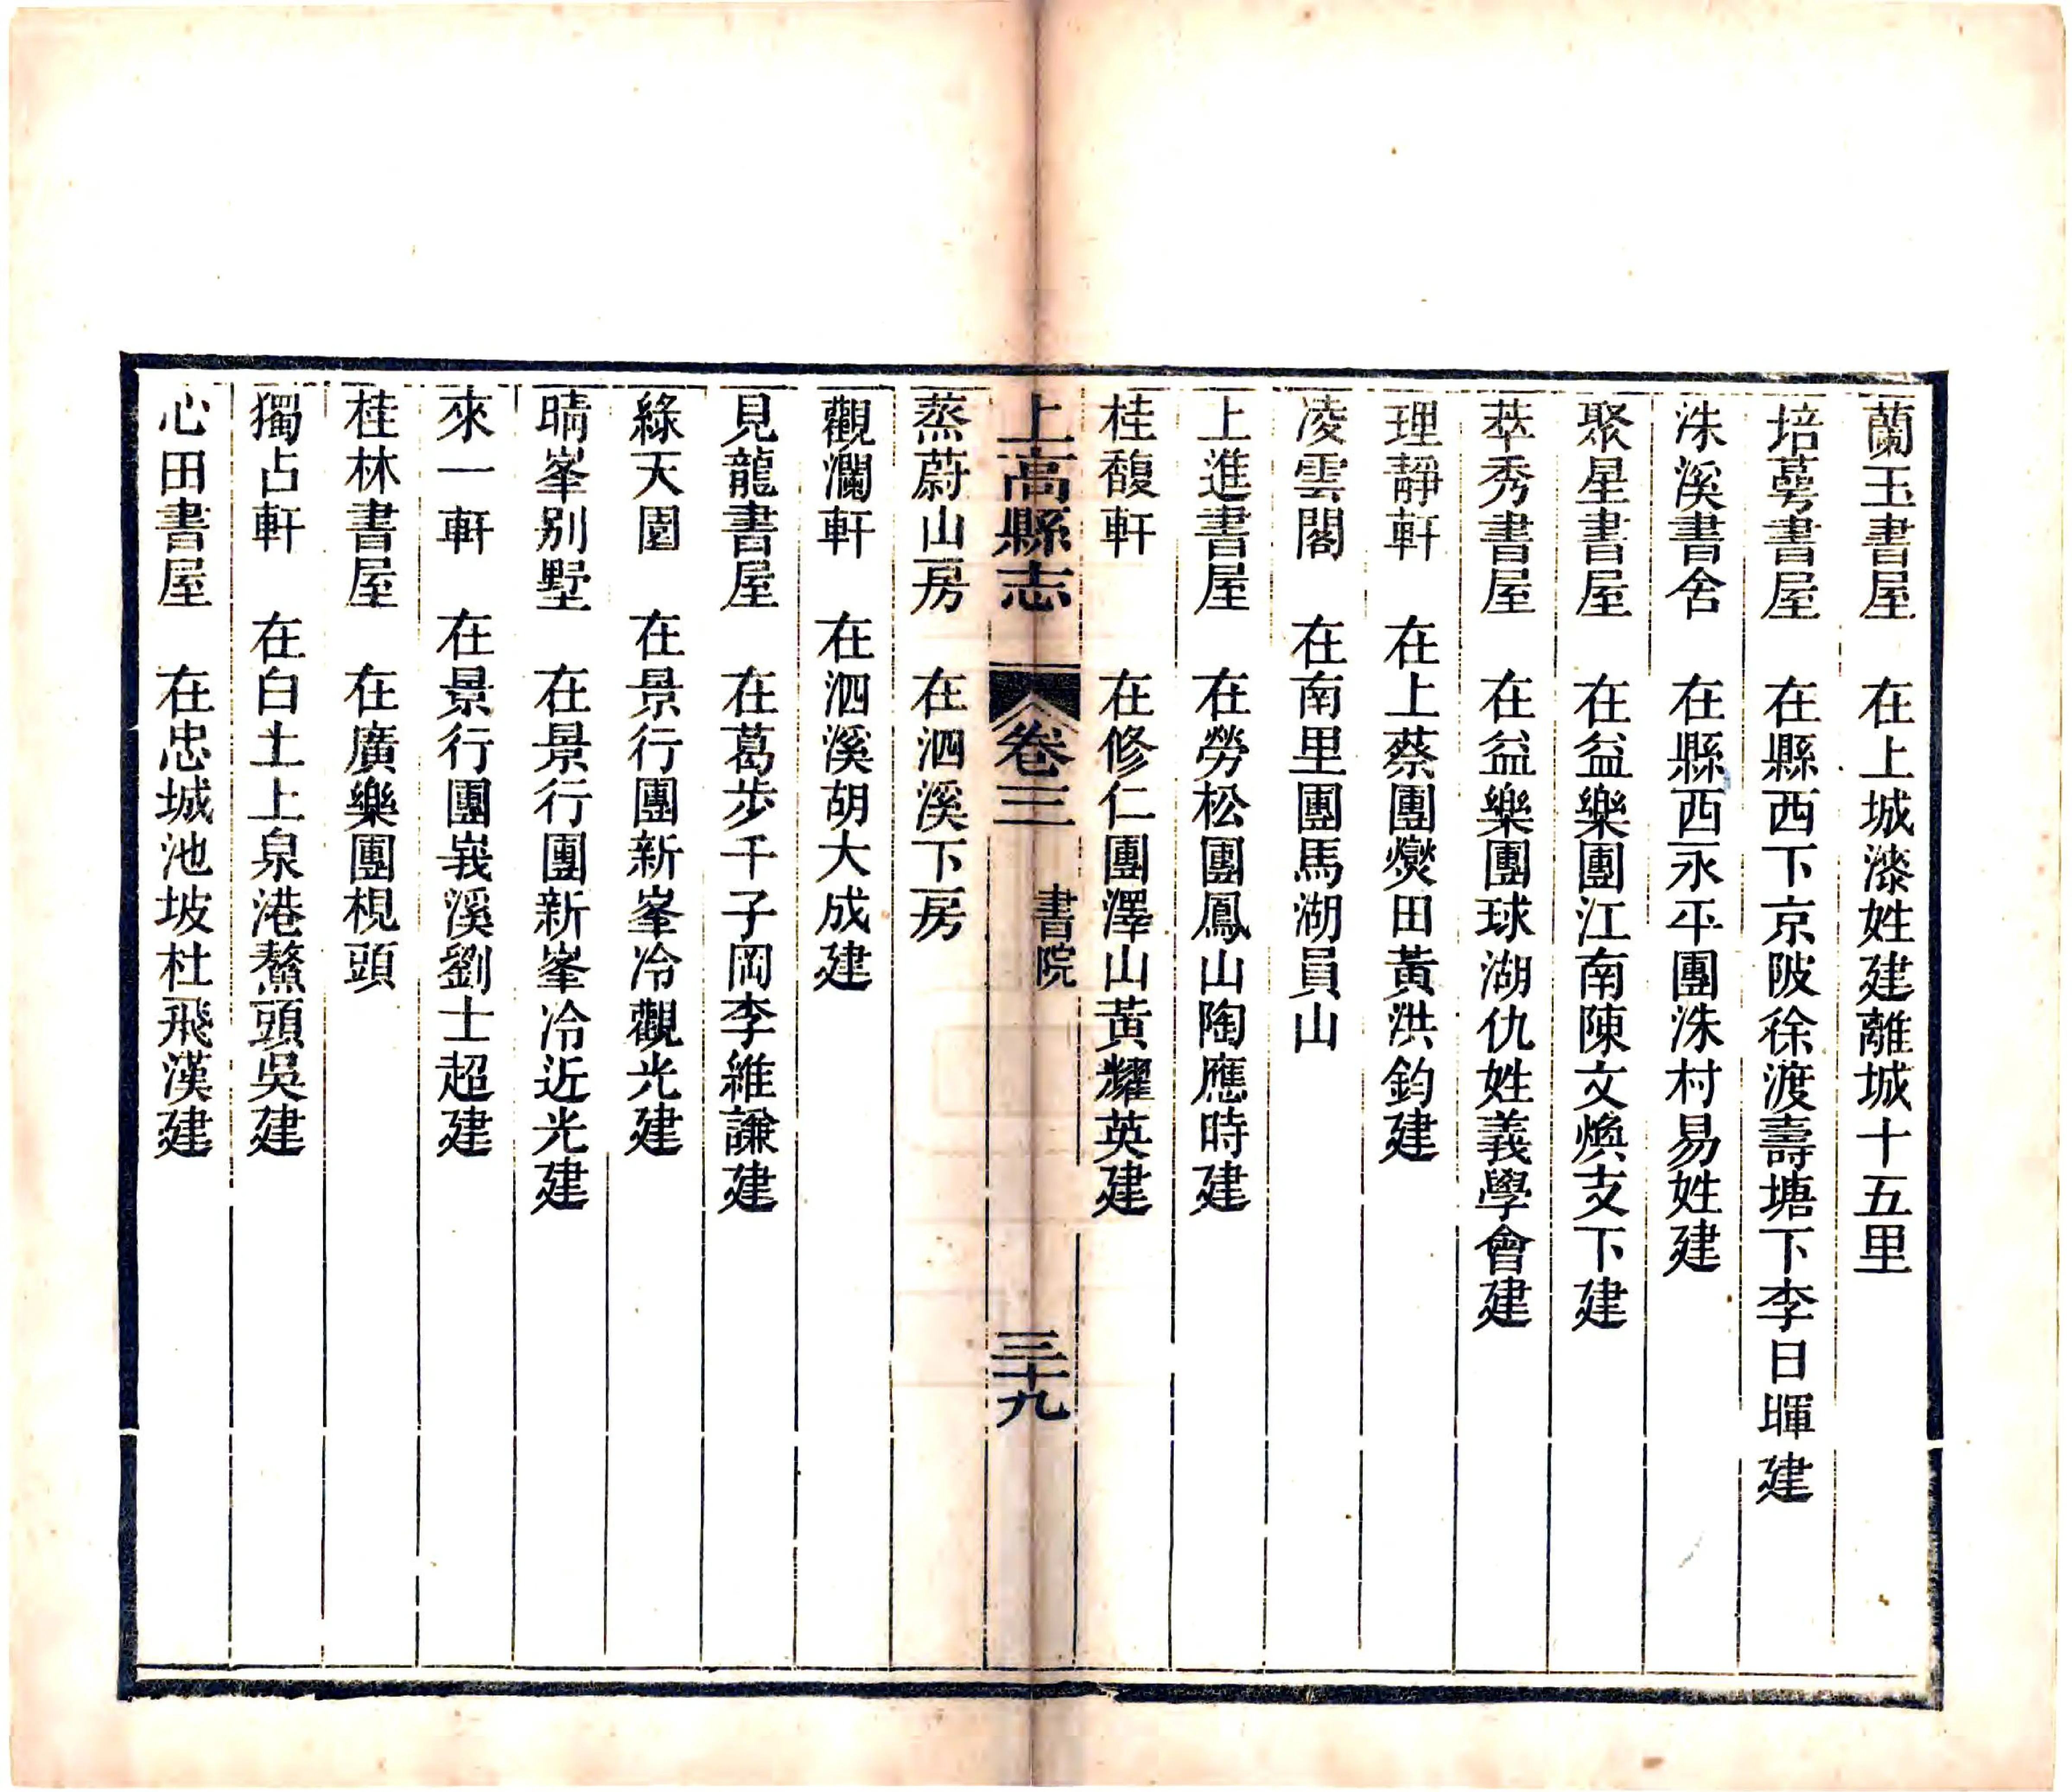 蘭玉書屋　在上城漆姓建離城十五里
培蕚書屋　在縣西下京陂徐渡壽塘下李日暉建
洙溪書舍　在縣西永平團洙村易姓建
聚星書屋　在益樂團江南陳文煥支下建
萃秀書屋　在益樂團球湖仇姓義學會建
理靜軒　在上蔡團爕田黃洪鈞建
凌雲閣　在南里團馬湖員山
上進書屋　在勞松團鳳山陶應時建
桂馥軒　在修仁團澤山黃耀英建
上高縣志　卷三　書院　三十九
蒸蔚山房　在泗溪下房
觀瀾軒　在泗溪胡大成建
見龍書屋　在葛步千子岡李維謙建
綠天園　在景行團新峯冷觀光建
晴峯别墅　在景行團新峯冷近光建
來一軒　在景行團峩溪劉士超建
桂林書屋　在廣樂團梘頭
獨占軒　在白土上泉港鰲頭吳建
心田書屋　在忠城池坡杜飛漢建